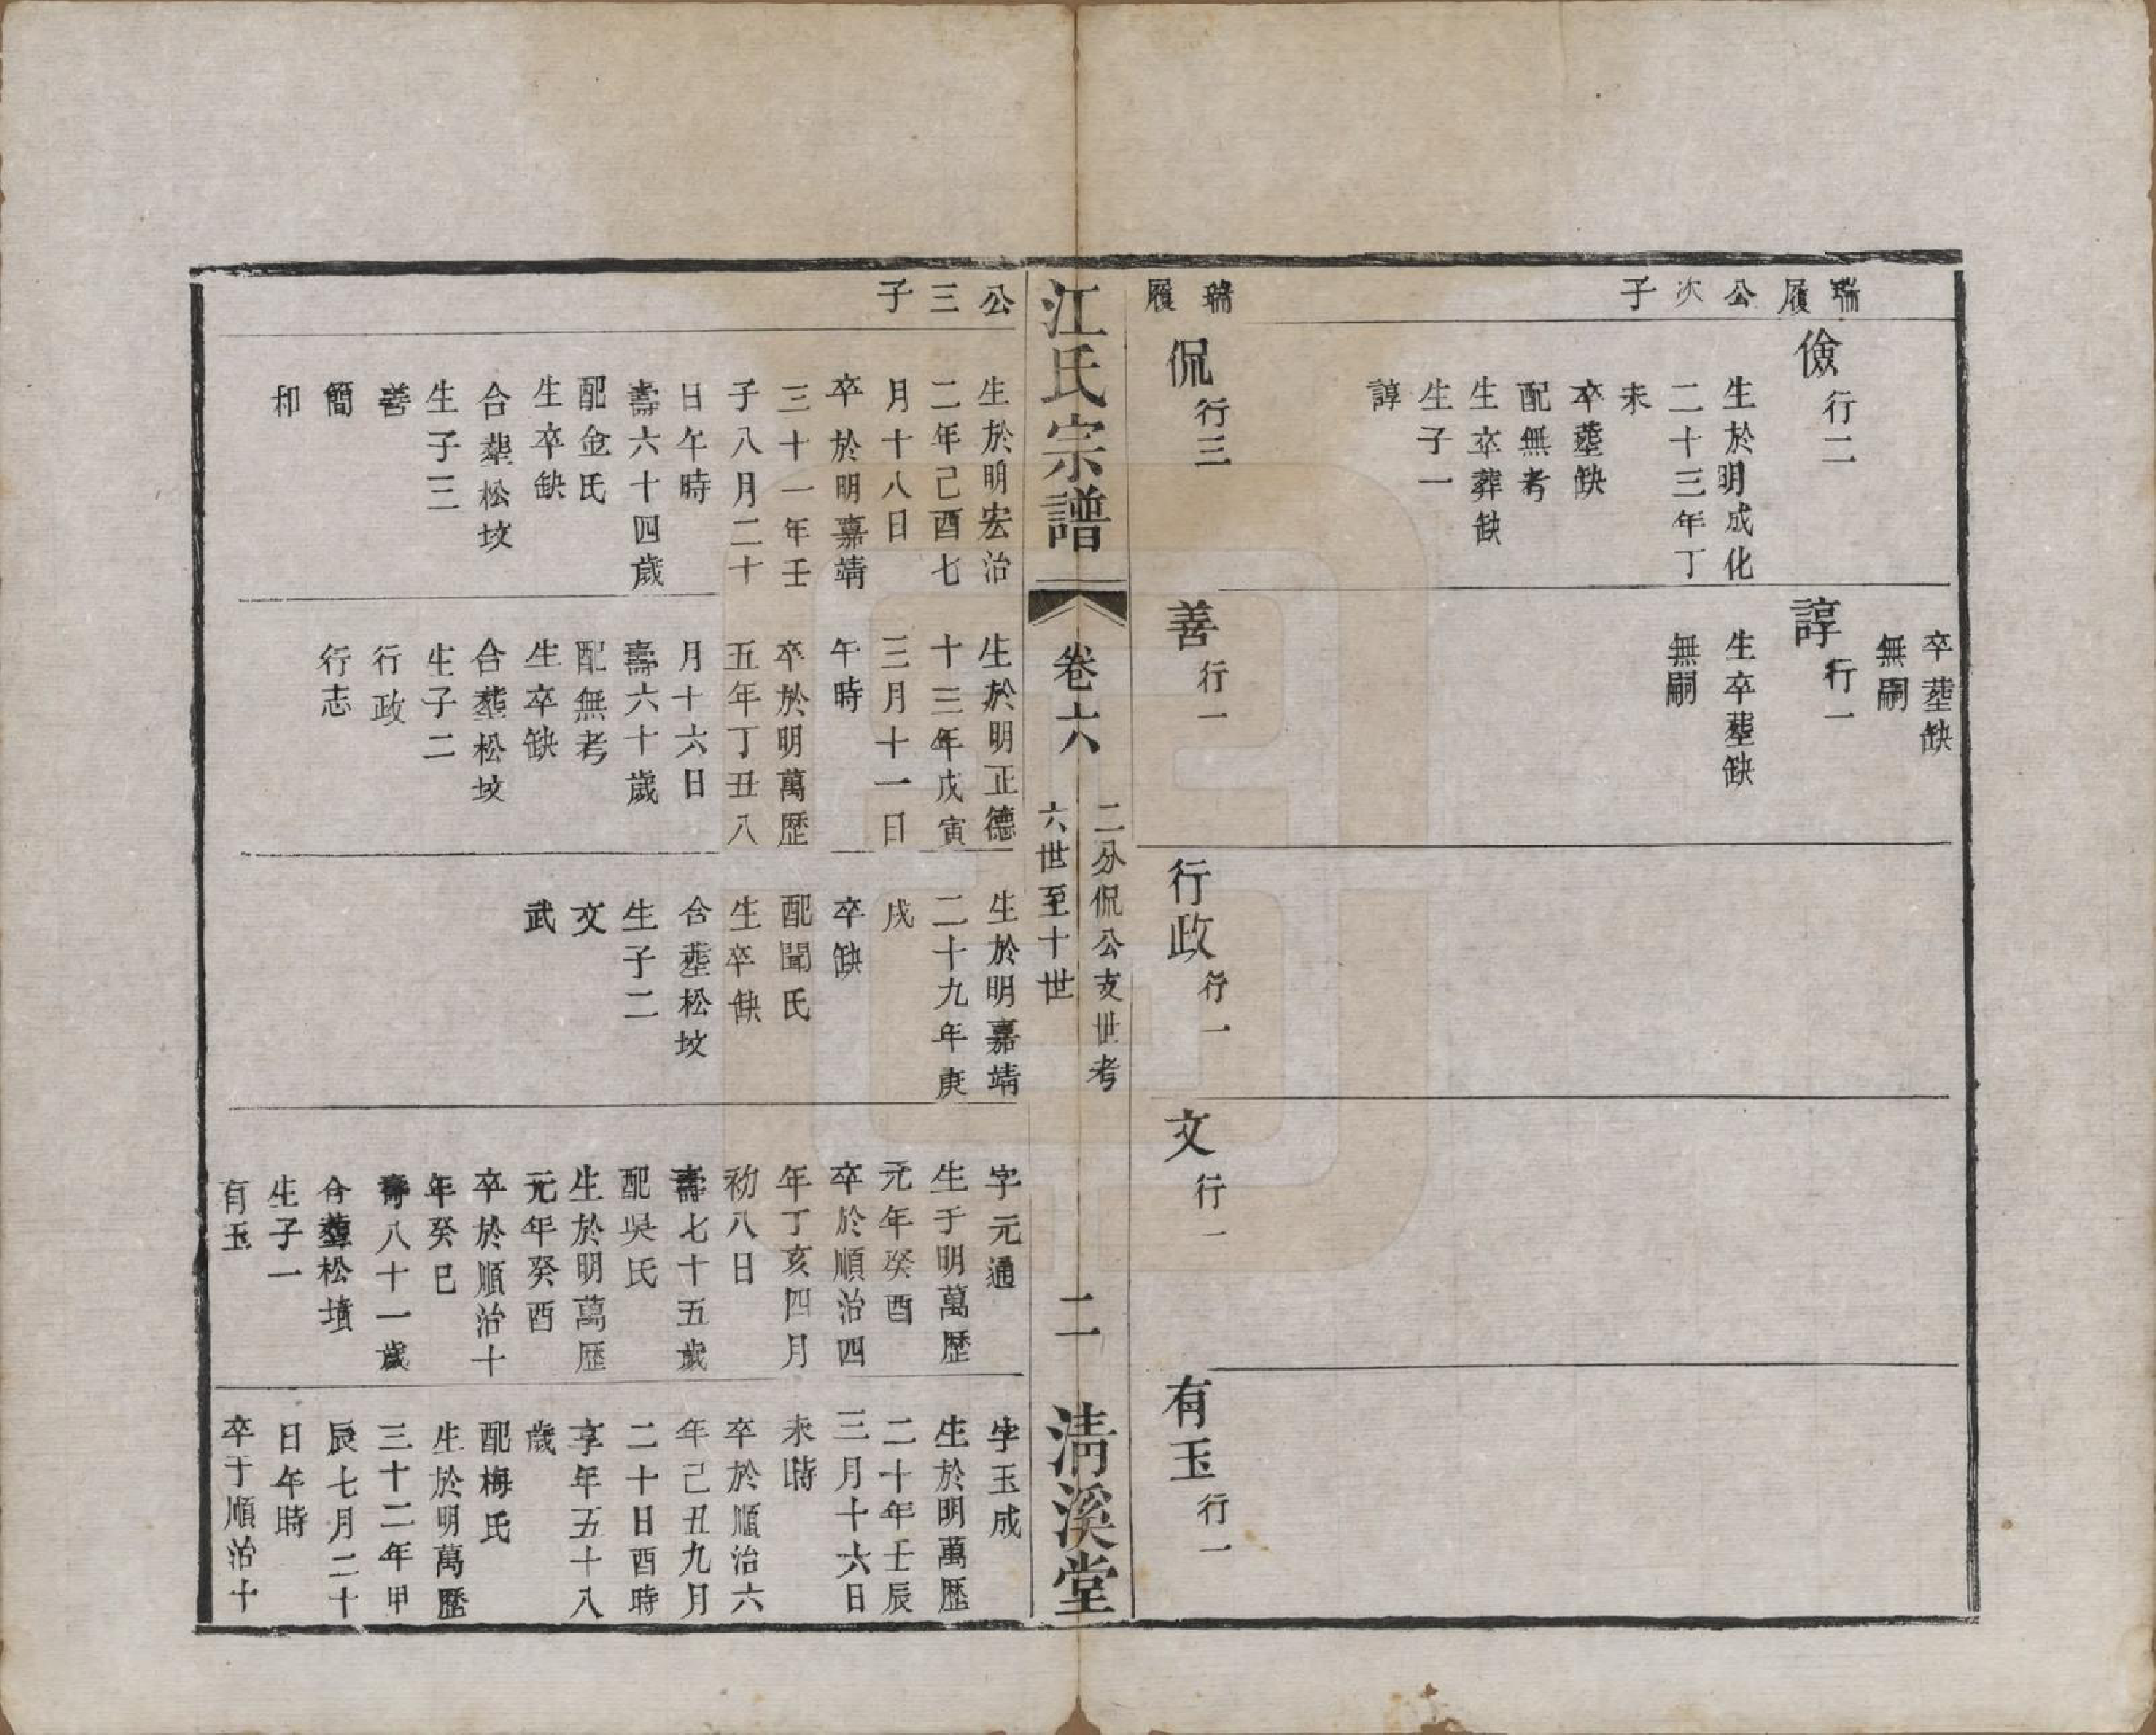 瑞履公次子
儉行二
生於明成化
二十三年丁
未
卒塟缺
配無考
生卒葬缺
生子一
諄
卒塟缺
無嗣
諄行一
生卒塟缺
無嗣
瑞履
侃行三
善行一
行政行一
文行一
有玉行一
江氏宗譜
卷六
二分侃公支世考
六世至十世
二
淸溪堂
公三子
生於明宏治
二年己酉七
月十八日
卒於明嘉靖
三十一年壬
子八月二十
日午時
壽六十四歲
配金氏
生卒缺
合塟松坟
生子三
善
簡
和
生於明正德
十三年戊寅
三月十一日
午時
卒於明萬歷
五年丁丑八
月十六日
壽六十歲
配無考
生卒缺
合塟松坟
生子二
行政
行志
生於明嘉靖
二十九年庚
戌
卒缺
配聞氏
生卒缺
合塟松坟
生子二
文
武
字元通
生于明萬歷
元年癸酉
卒於順治四
年丁亥四月
初八日
壽七十五歲
配吳氏
生於明萬歷
元年癸酉
卒於順治十
年癸巳
壽八十一歲
合塟松墳
生子一
有玉
字玉成
生於明萬歷
二十年壬辰
三月十六日
未時
卒於順治六
年己丑九月
二十日酉時
享年五十八
歲
配梅氏
生於明萬歷
三十二年甲
辰七月二十
日午時
卒于順治十